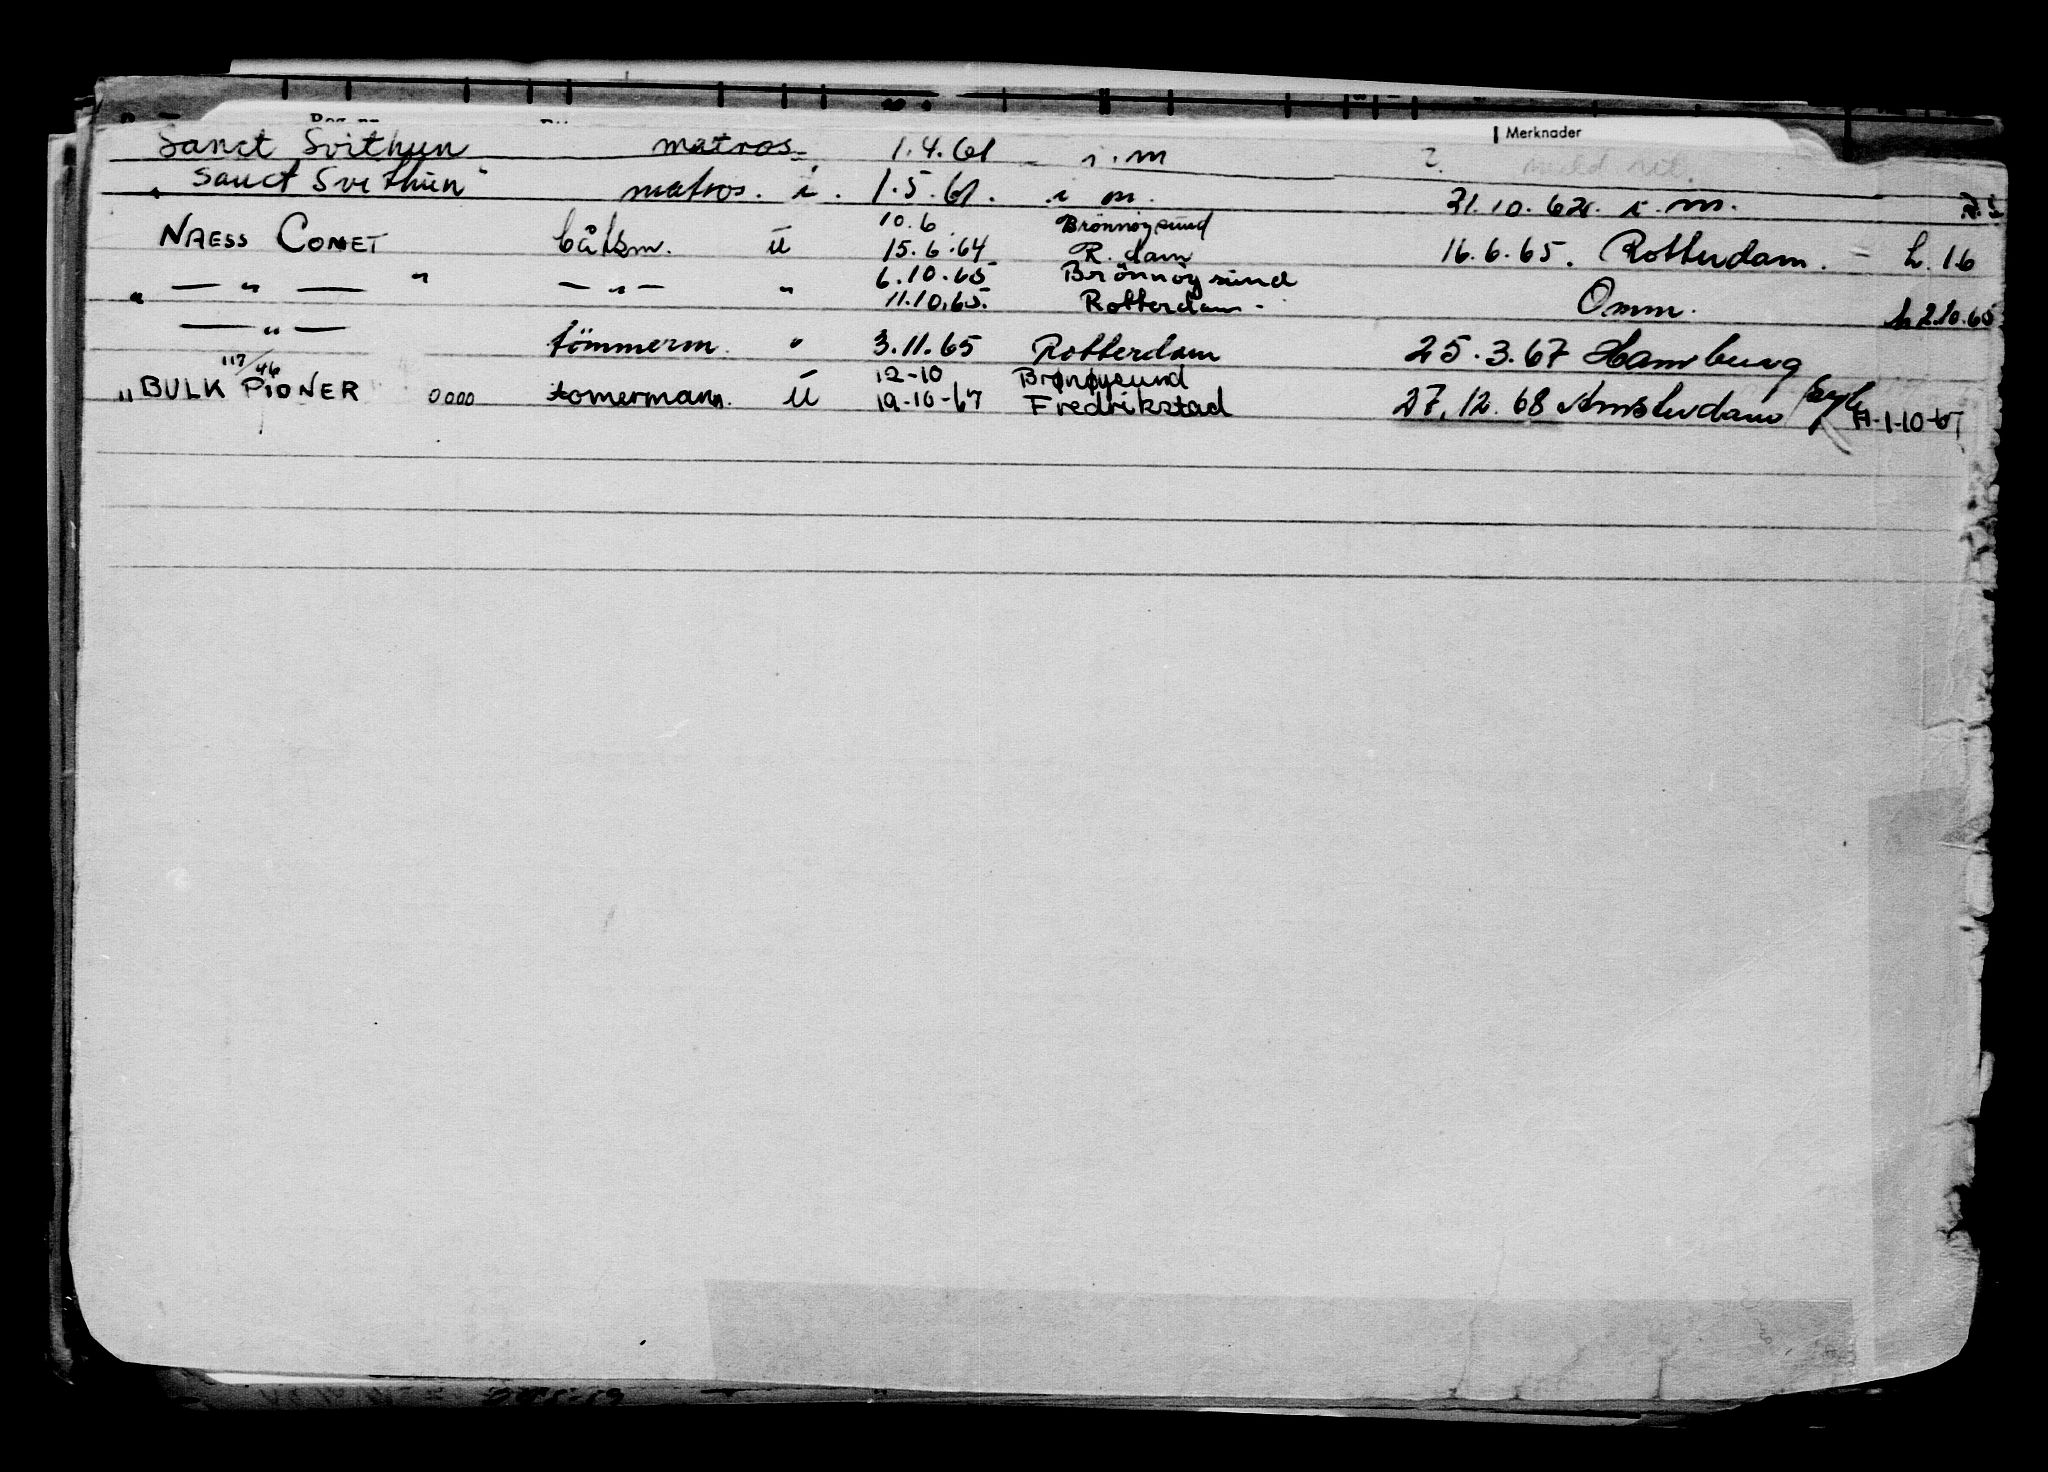 Merknader
Sanct Svithun matros 1.4.61 i.m ?
" Sanct Svithun" matros. i. 1.5.61. i m. 31.10.62. i.m.
10.6 Brönnöysund
NAESS COMET båtsm. ü 15.6.64 R.dam 16.6.65. Rotterdam. - h.16
6.10.65 Brönnöysund
" — " — " — " — " 11.10.65. Rotterdam - Omm. h 2.10.65
— " — tömmerm. " 3.11.65 Rotterdam 25.3.67 Hamburg
117/46 12-10 Brønøysund
"BULK PIONER 0000 tomermann. ü 19-10-67 Fredrikstad 27.12.68 Amsterdam A-1-10-67